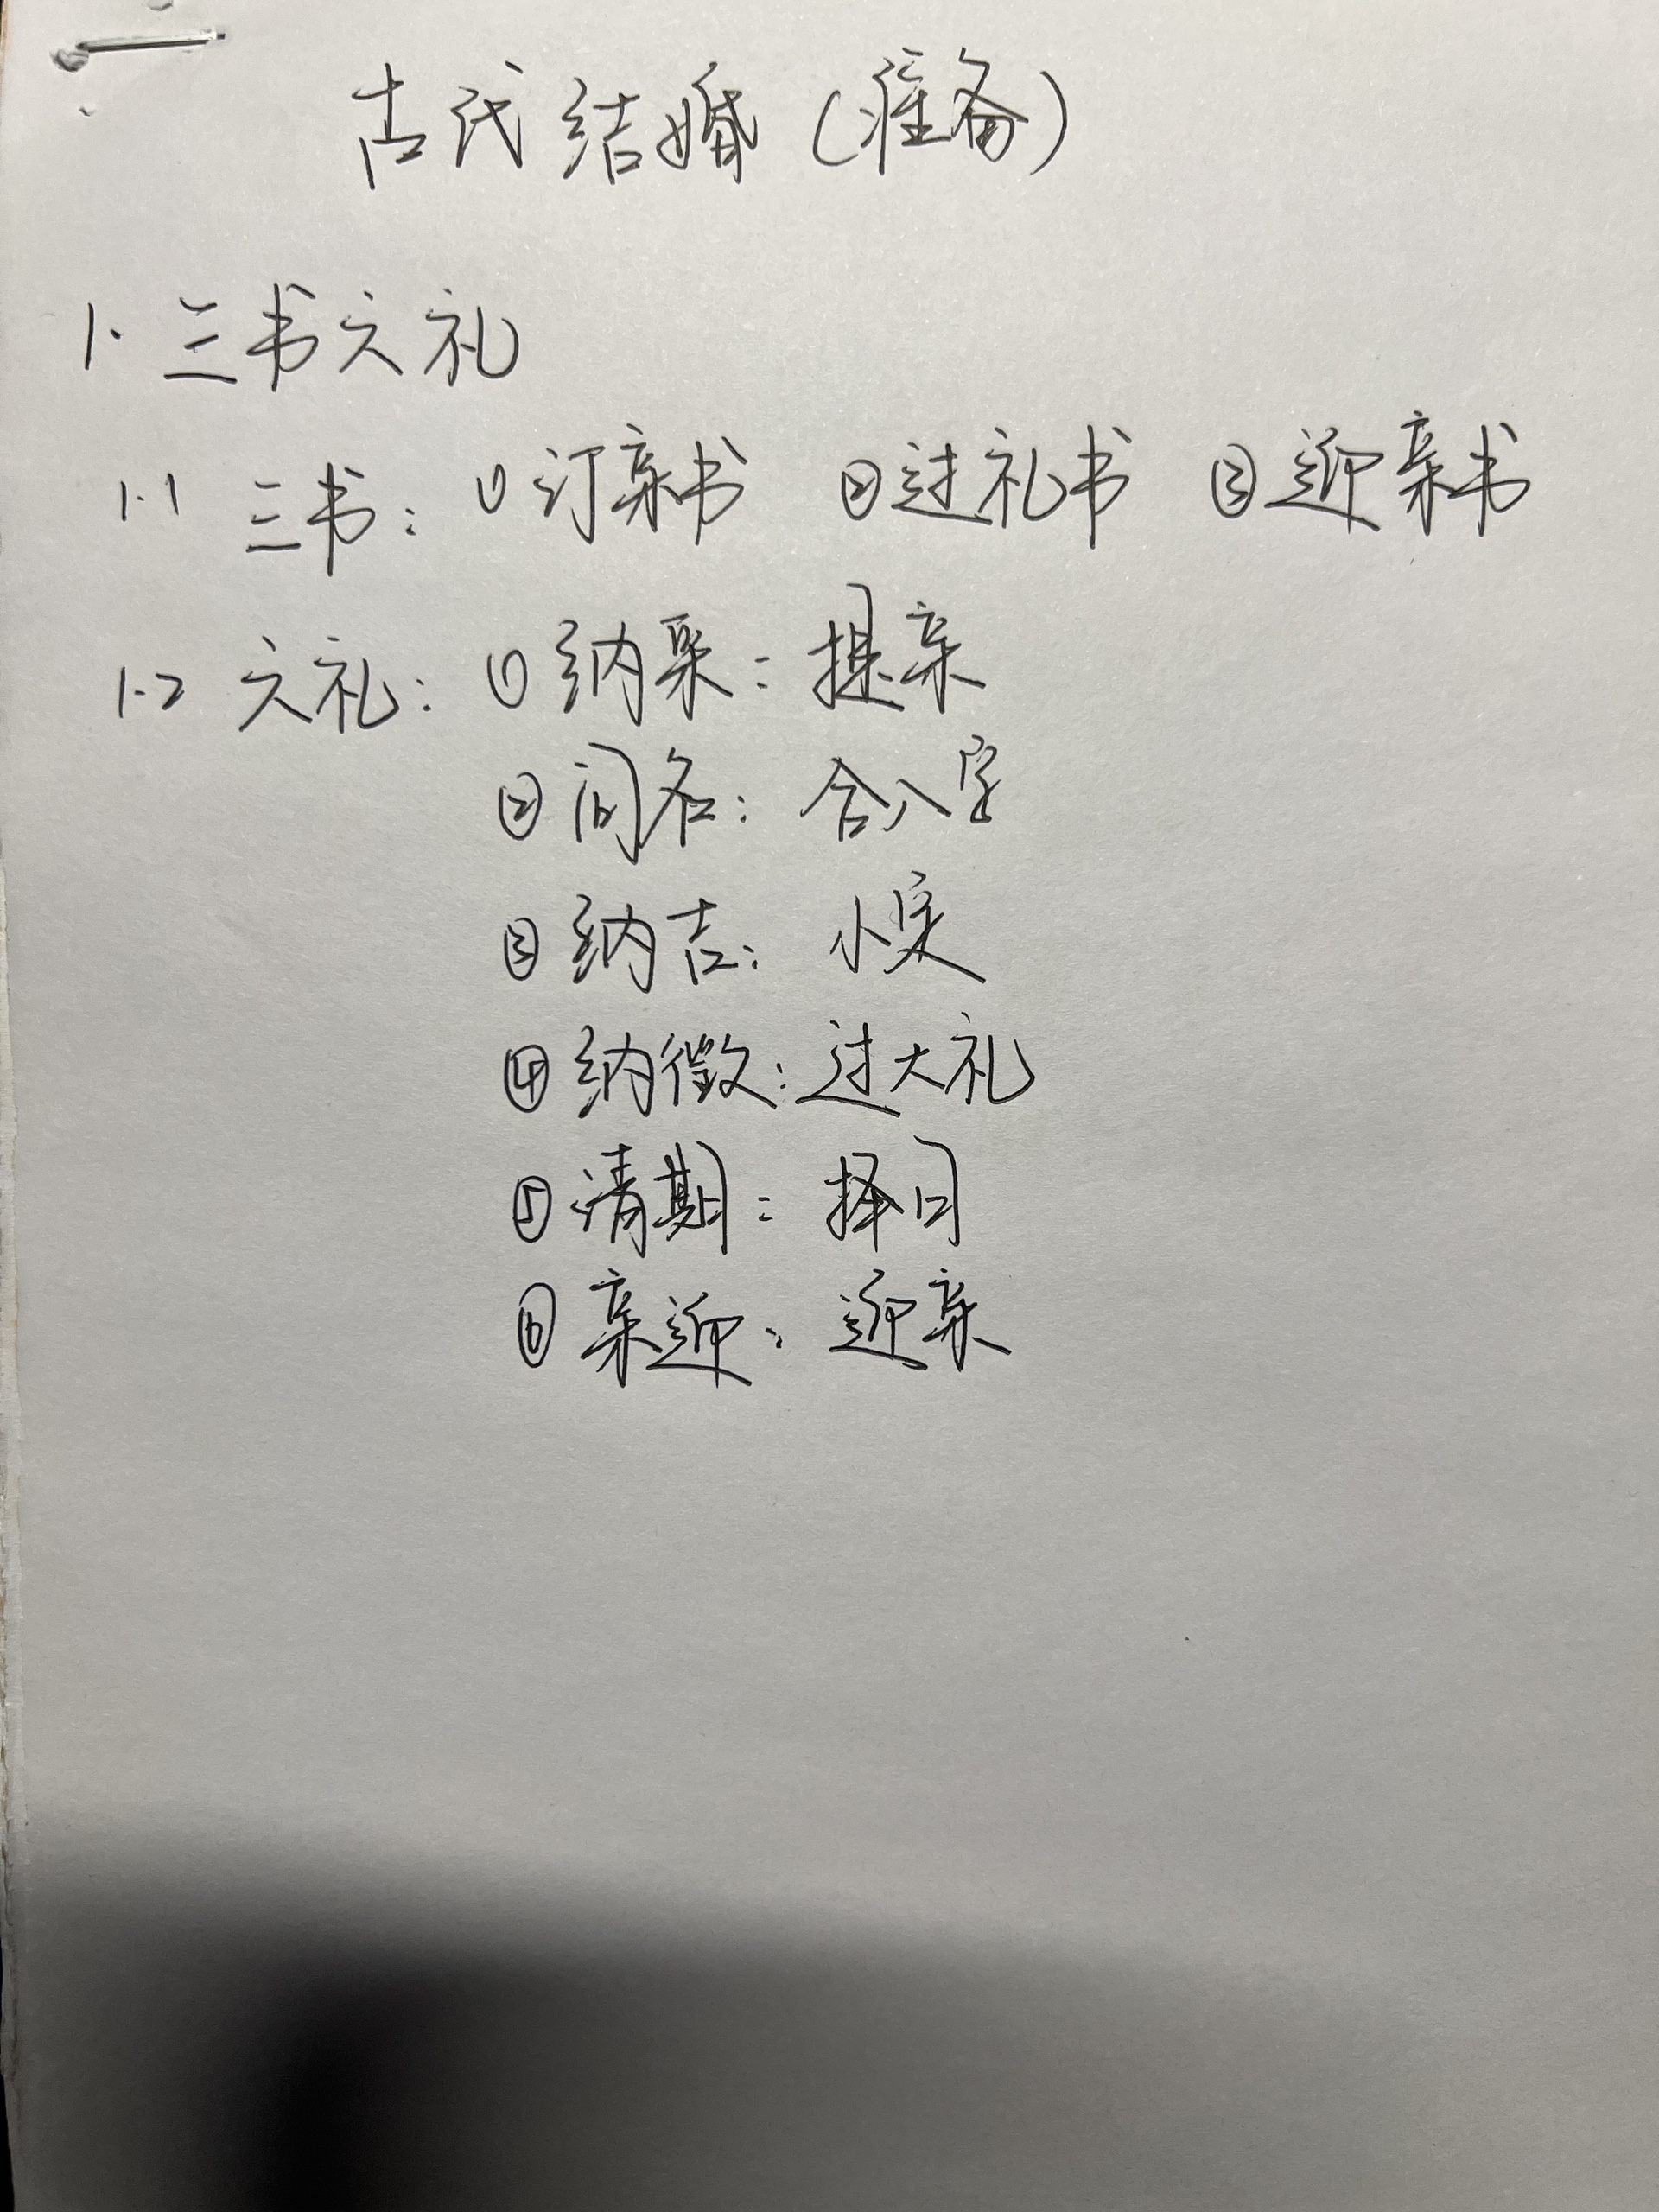 古代结婚（准备）
1. 三书六礼
1.1 三书：①订亲书 ②过礼书 ③迎亲书
1.2 六礼：①纳采：提亲
②问名：合八字
③纳吉：小定
④纳徵：过大礼
⑤请期：择日
⑥亲迎：迎亲